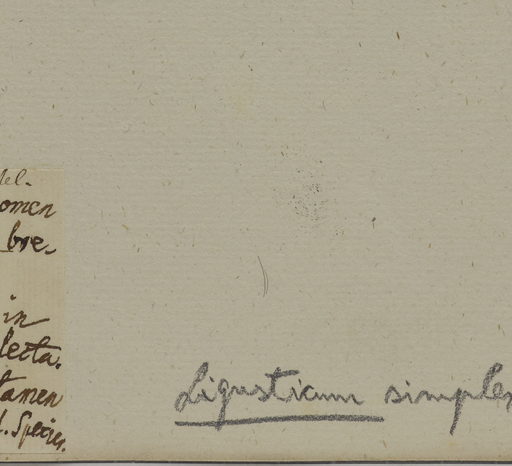 omen
bre-
in
lecta.
tamen
Species.
Ligusticum simplex